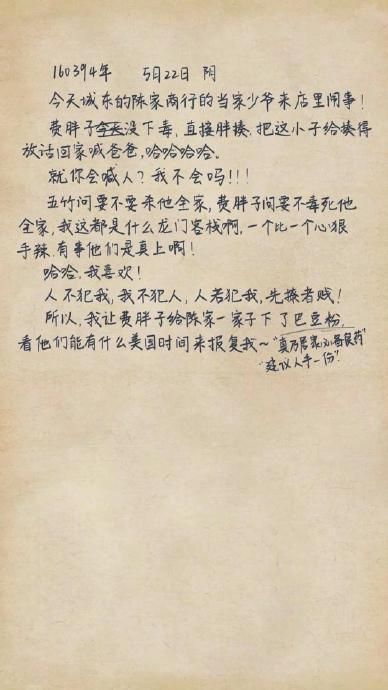 160394年 5月22日 阴
今天城东的陈家商行的当家少爷来店里闹事！
费胖子今天没下毒，直接胖揍，把这小子给揍得
放话回家喊爸爸，哈哈哈哈。
就你会喊人？我不会吗！！！
五竹问要不要杀他全家，费胖子问要不毒死他
全家，我这都是什么龙门客栈啊，一个比一个心狠
手辣，有事他们是真上啊！
哈哈，我喜欢！
人不犯我，我不犯人，人若犯我，先揍老贼！
所以，我让费胖子给陈家一家子下了巴豆粉，
看他们能有什么美国时间来报复我～“真乃居家必备良药”
“建议人手一份”